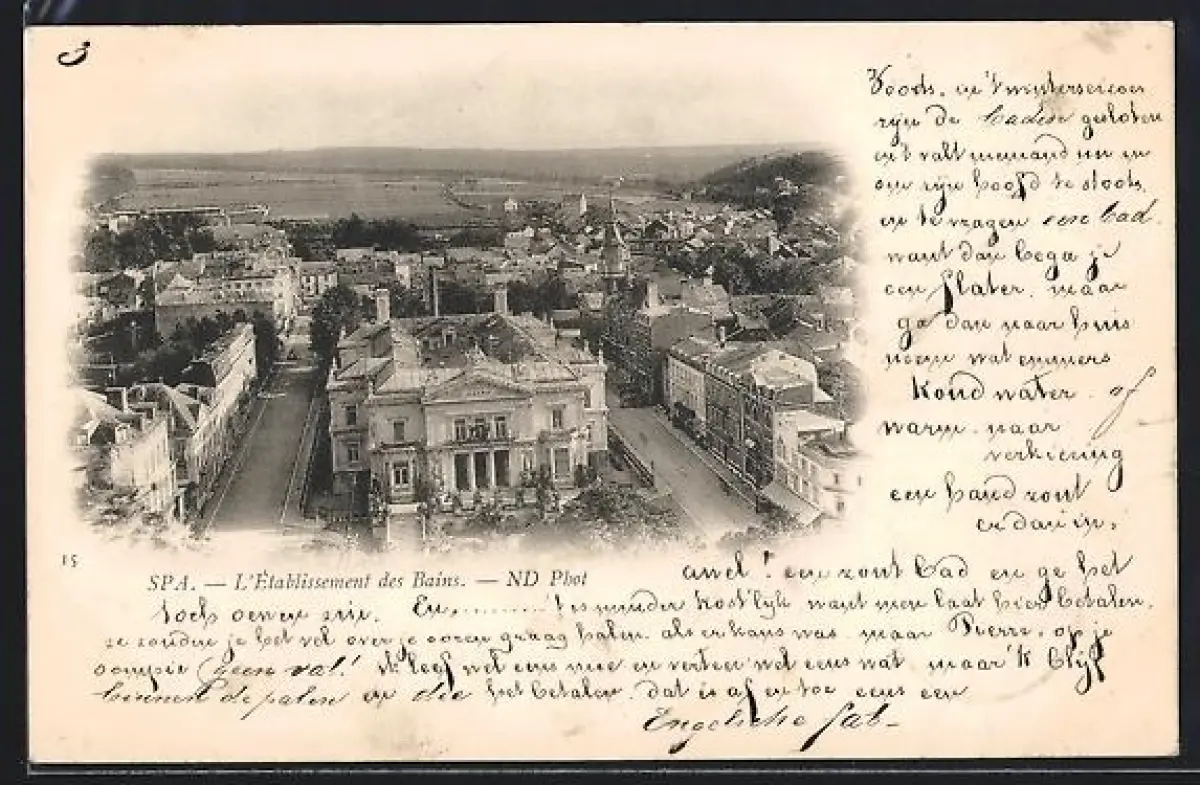 3
Voods. en 't winterseizoen
zijn de baden gesloten
en 't valt niemand in
om zijn hoofd te stooten
en te vragen een bad.
want dan bega je
een flater. maar
ga dan naar huis
neem wat emmers
koud water of
warm. naar
verkiezing
een hand zout
er dan in.
15
SPA. — L'Établissement des Bains. — ND Phot
een zout bad en ge het
toch oeven zie. En......... 't is minder kost'lijk want men laat hier betalen.
ze zouden je het vel over je ooren graag halen als er kans was. maar Pierre. op je
geen val! ik leef wel eens mee en verteer wel eens wat maar 'k blijf
binnen de palen en die het betalen. dat is af en toe eens een
Engelsche lat-